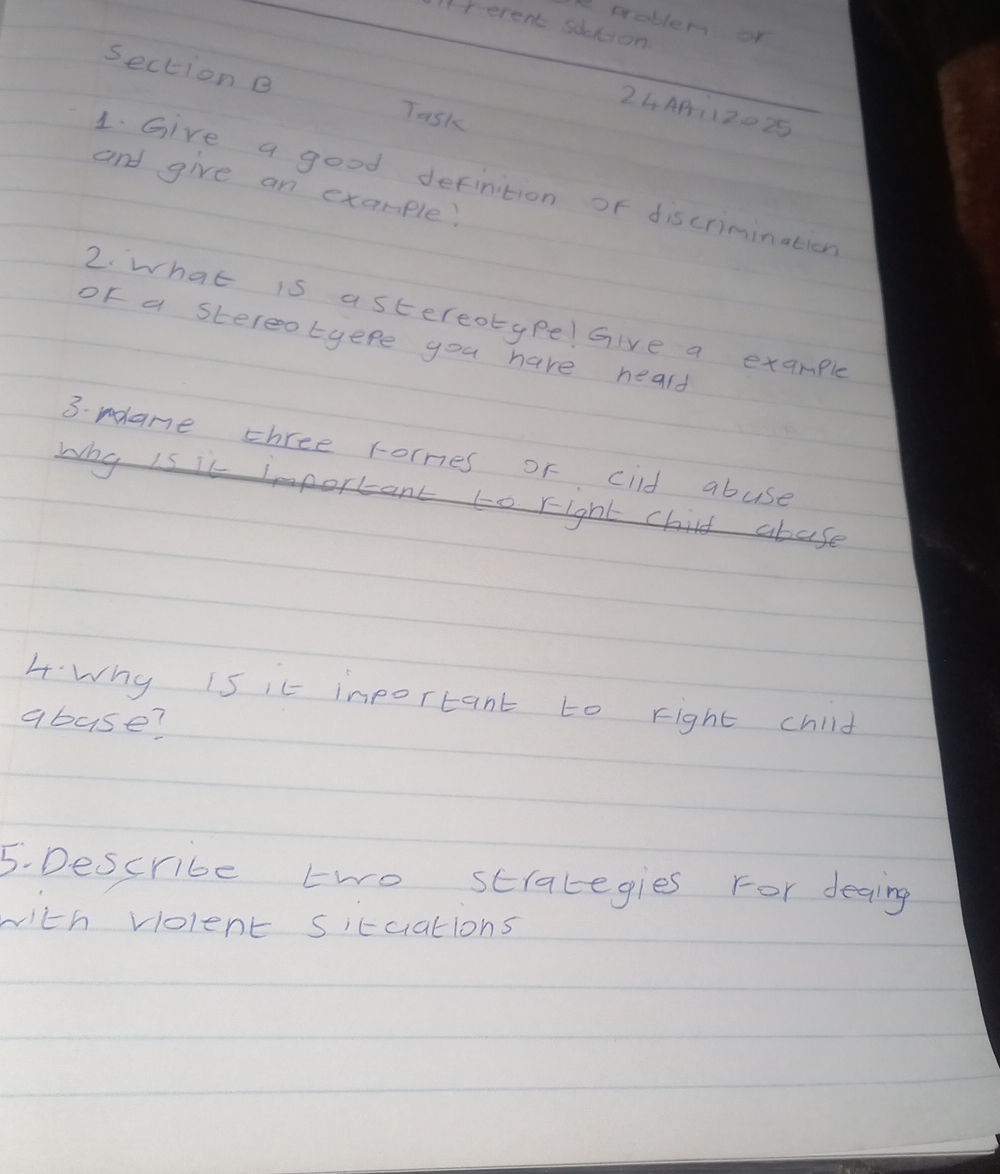 problem or
different solution
24 APril 2025
Section B
Task
1. Give a good definition of discrimination
and give an example?
2. What is a stereotype! Give a example
of a stereotyepe you have heard
3. name three formes of ciid abuse
Why is it important to fight child abase
4. Why is it important to fight child
abuse?
5. Describe two strategies for deaing
with violent situations